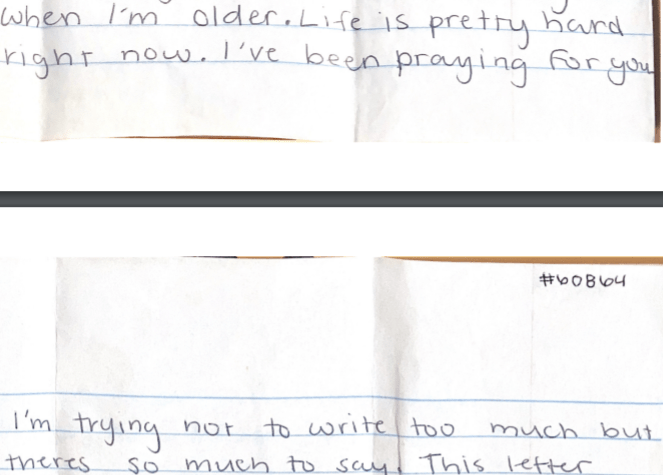 when I'm older. Life is pretty hard
right now. I've been praying for you
#60864
I'm trying not to write too much but
theres so much to say. This letter